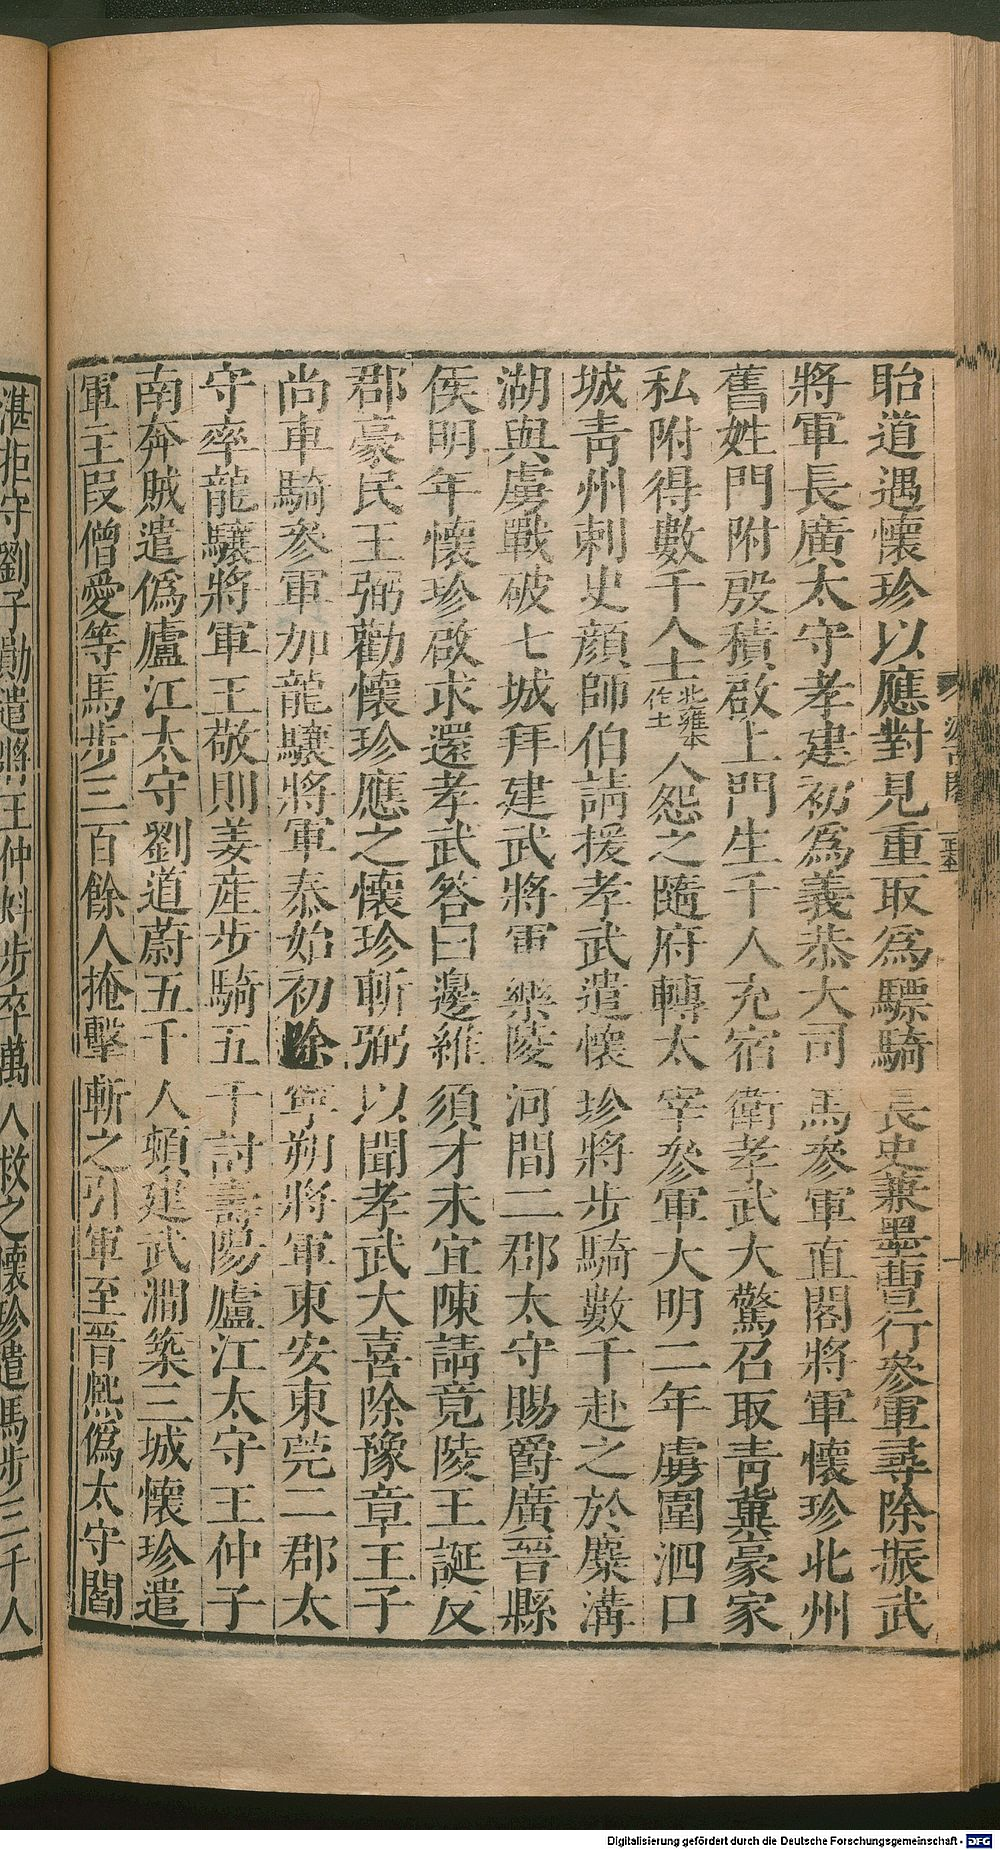 眙道遇懷珍以應對見重取爲驃騎長史兼墨曹行參軍尋除振武
將軍長廣太守孝建初爲義恭大司馬參軍直閤將軍懷珍北州
舊姓門附殷積啟上門生千人充宿衛孝武大驚召取青冀豪家
私附得數千人士北雍本作土人怨之隨府轉太宰參軍大明二年虜圍泗口
城青州刺史顔師伯請援孝武遣懷珍將步騎數千赴之於麋溝
湖與虜戰破七城拜建武將軍樂陵河間二郡太守賜爵廣晉縣
侯明年懷珍啟求還孝武答曰邊維須才未宜陳請竟陵王誕反
郡豪民王弼勸懷珍應之懷珍斬弼以聞孝武大喜除豫章王子
尚車騎參軍加龍驤將軍泰始初除寧朔將軍東安東莞二郡太
守率龍驤將軍王敬則姜產步騎五千討壽陽廬江太守王仲子
南奔賊遣僞廬江太守劉道蔚五千人頓建武澗築三城懷珍遣
軍主段僧愛等馬步三百餘人掩擊斬之引軍至晉熙僞太守閻
湛拒守劉子勛遣將王仲虯步卒萬人救之懷珍遣馬步三千人
Digitalisierung gefördert durch die Deutsche Forschungsgemeinschaft - DFG